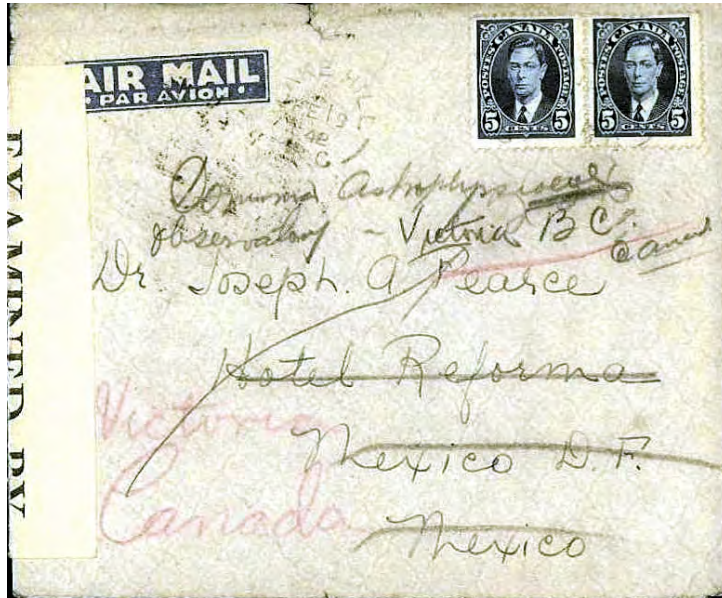 AIR MAIL
• PAR AVION •
POSTES CANADA POSTAGE
5 CENTS 5
POSTES CANADA POSTAGE
5 CENTS 5
19
42
Astrophysical
Observatory - Victoria B C.
Canada
Dr. Joseph. A Pearce
Hotel Reforma
Mexico D.F.
Mexico
Victoria
Canada
EXAMINED BY